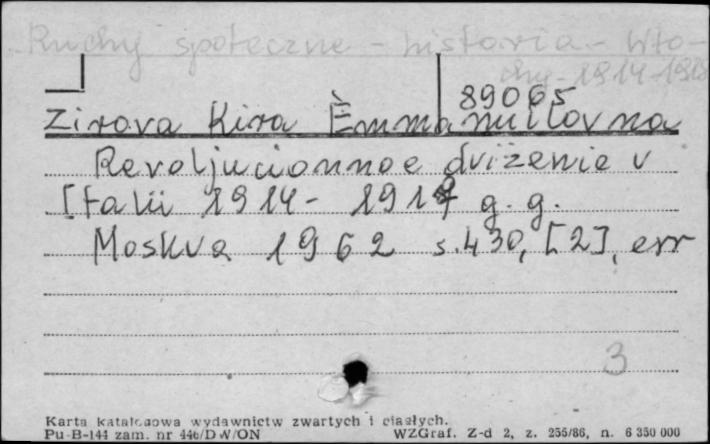 Ruchy społeczne - historia - Wło-
chy - 1914-1918
89065
Zirova Kira Èmmanuilovna
Revoljucionnoe dviženie v
Italii 1914- 1917 g.g.
Moskva 1962 s.430, [2], err
3
Karta katalogowa wydawnictw zwartych i ciągłych.
Pu-B-144 zam. nr 446/DW/ON WZGraf. Z-d 2, z. 256/86, n. 6 350 000